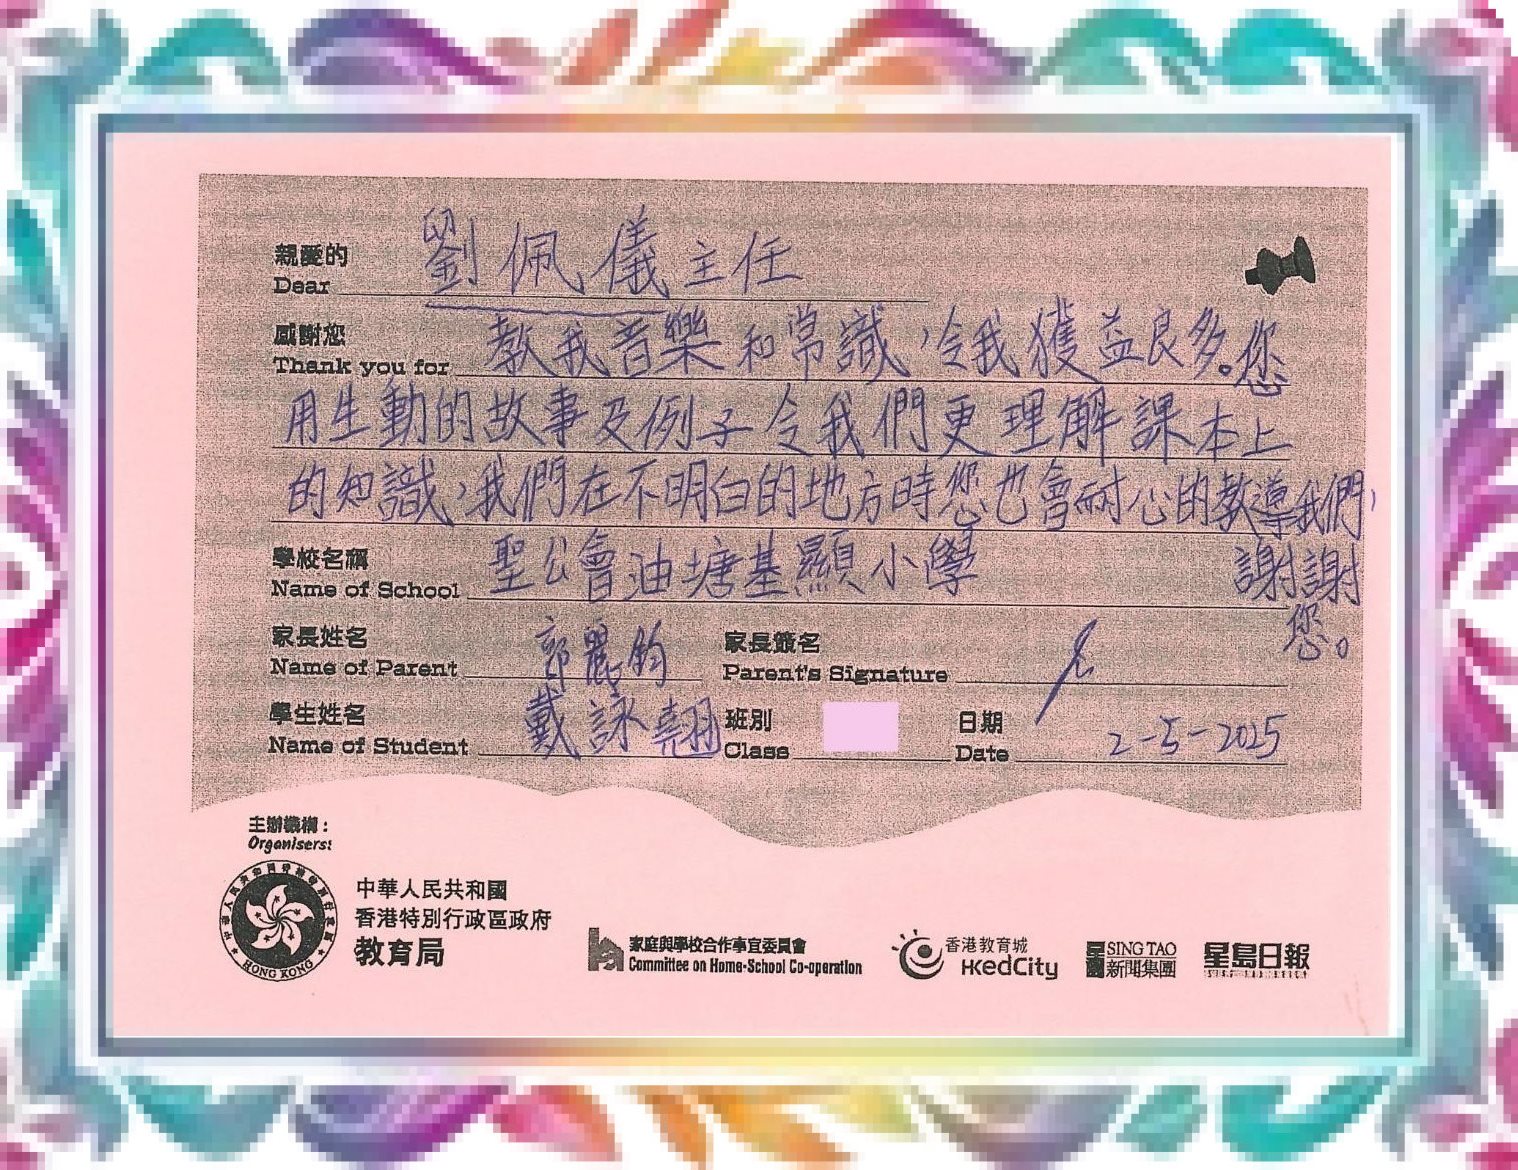 親愛的
Dear 劉佩儀主任
感謝您
Thank you for 教我音樂和常識，令我獲益良多。您
用生動的故事及例子令我們更理解課本上
的知識，我們在不明白的地方時您也會耐心的教導我們，
謝謝
您。
學校名稱
Name of School 聖公會油塘基顯小學
家長姓名
Name of Parent 郭麗鈞
家長簽名
Parent's Signature
學生姓名
Name of Student 戴詠翹
班別
Class
日期
Date 2-5-2025
主辦機構：
Organisers:
HONG KONG
中華人民共和國
香港特別行政區政府
教育局
家庭與學校合作事宜委員會
Committee on Home-School Co-operation
香港教育城
HKedCity
星島 SING TAO
新聞集團
星島日報